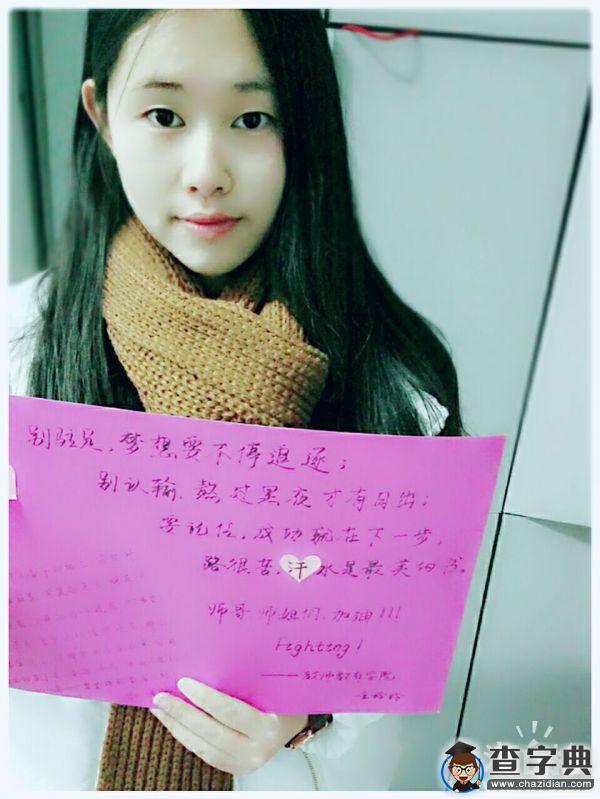 别驻足，梦想要不停追逐；
别认输，熬过黑夜才有日出；
要记住，成功就在下一步，
路很苦，汗水是最美的书。
师哥师姐们，加油!!!
Fighting!
——教师教育学院
查字典
www.chazidian.com